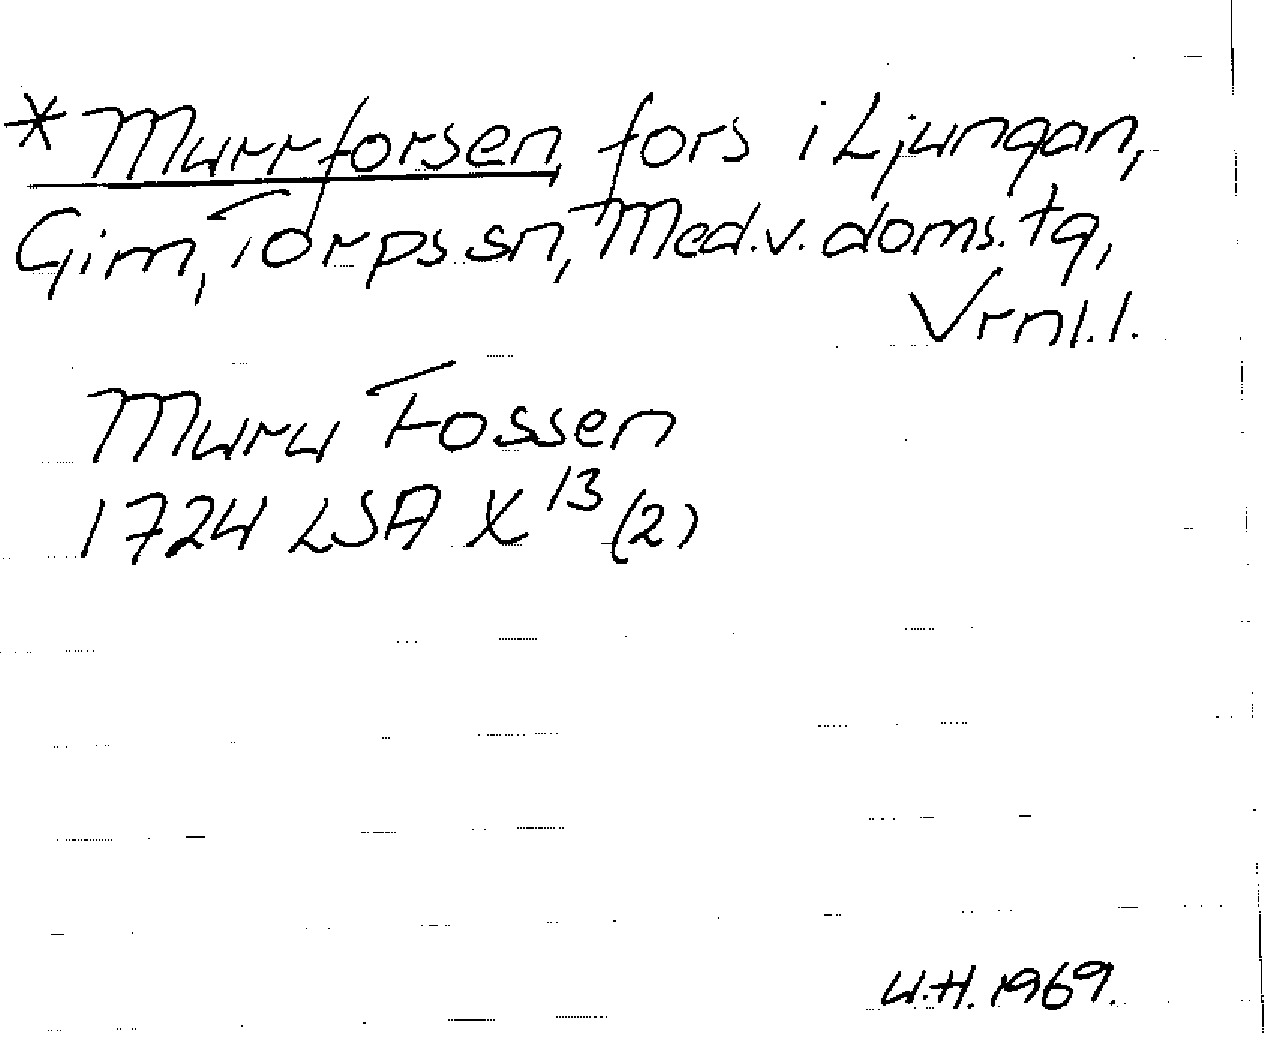 *Murrforsen, fors i Ljungan,
Gim, Torps sn, Med.v. doms. tg,
Vrnl.l.
Muru Fossen
1724 LSA X 13 (2)
U.H. 1969.